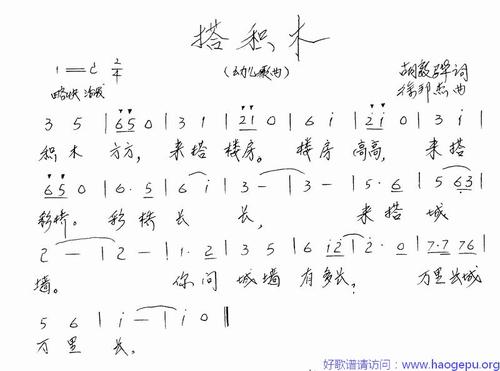 搭积木
(幼儿歌曲)
1=C 2/4
胡敦骅词
略快 活泼
徐邦杰曲
3 5 | 6 5 0 | 3 1 | 2 1 0 | 6 i | 2 i 0 | 3 i |
积木 方方, 来搭 楼房。 楼房 高高, 来搭
6 5 0 | 6· 5 | 6 i | 3 — | 3 — | 5· 6 | 5 6 3 |
彩桥。 彩桥 长 长, 来搭 城
2 — | 2 — | 1· 2 | 3 5 | 6 i 2 | 2· 0 | 7·7 7 6 |
墙。 你问 城墙 有多长, 万里长城
5 6 | i — | i 0 ‖
万里 长。
好歌谱请访问:www.haogepu.org